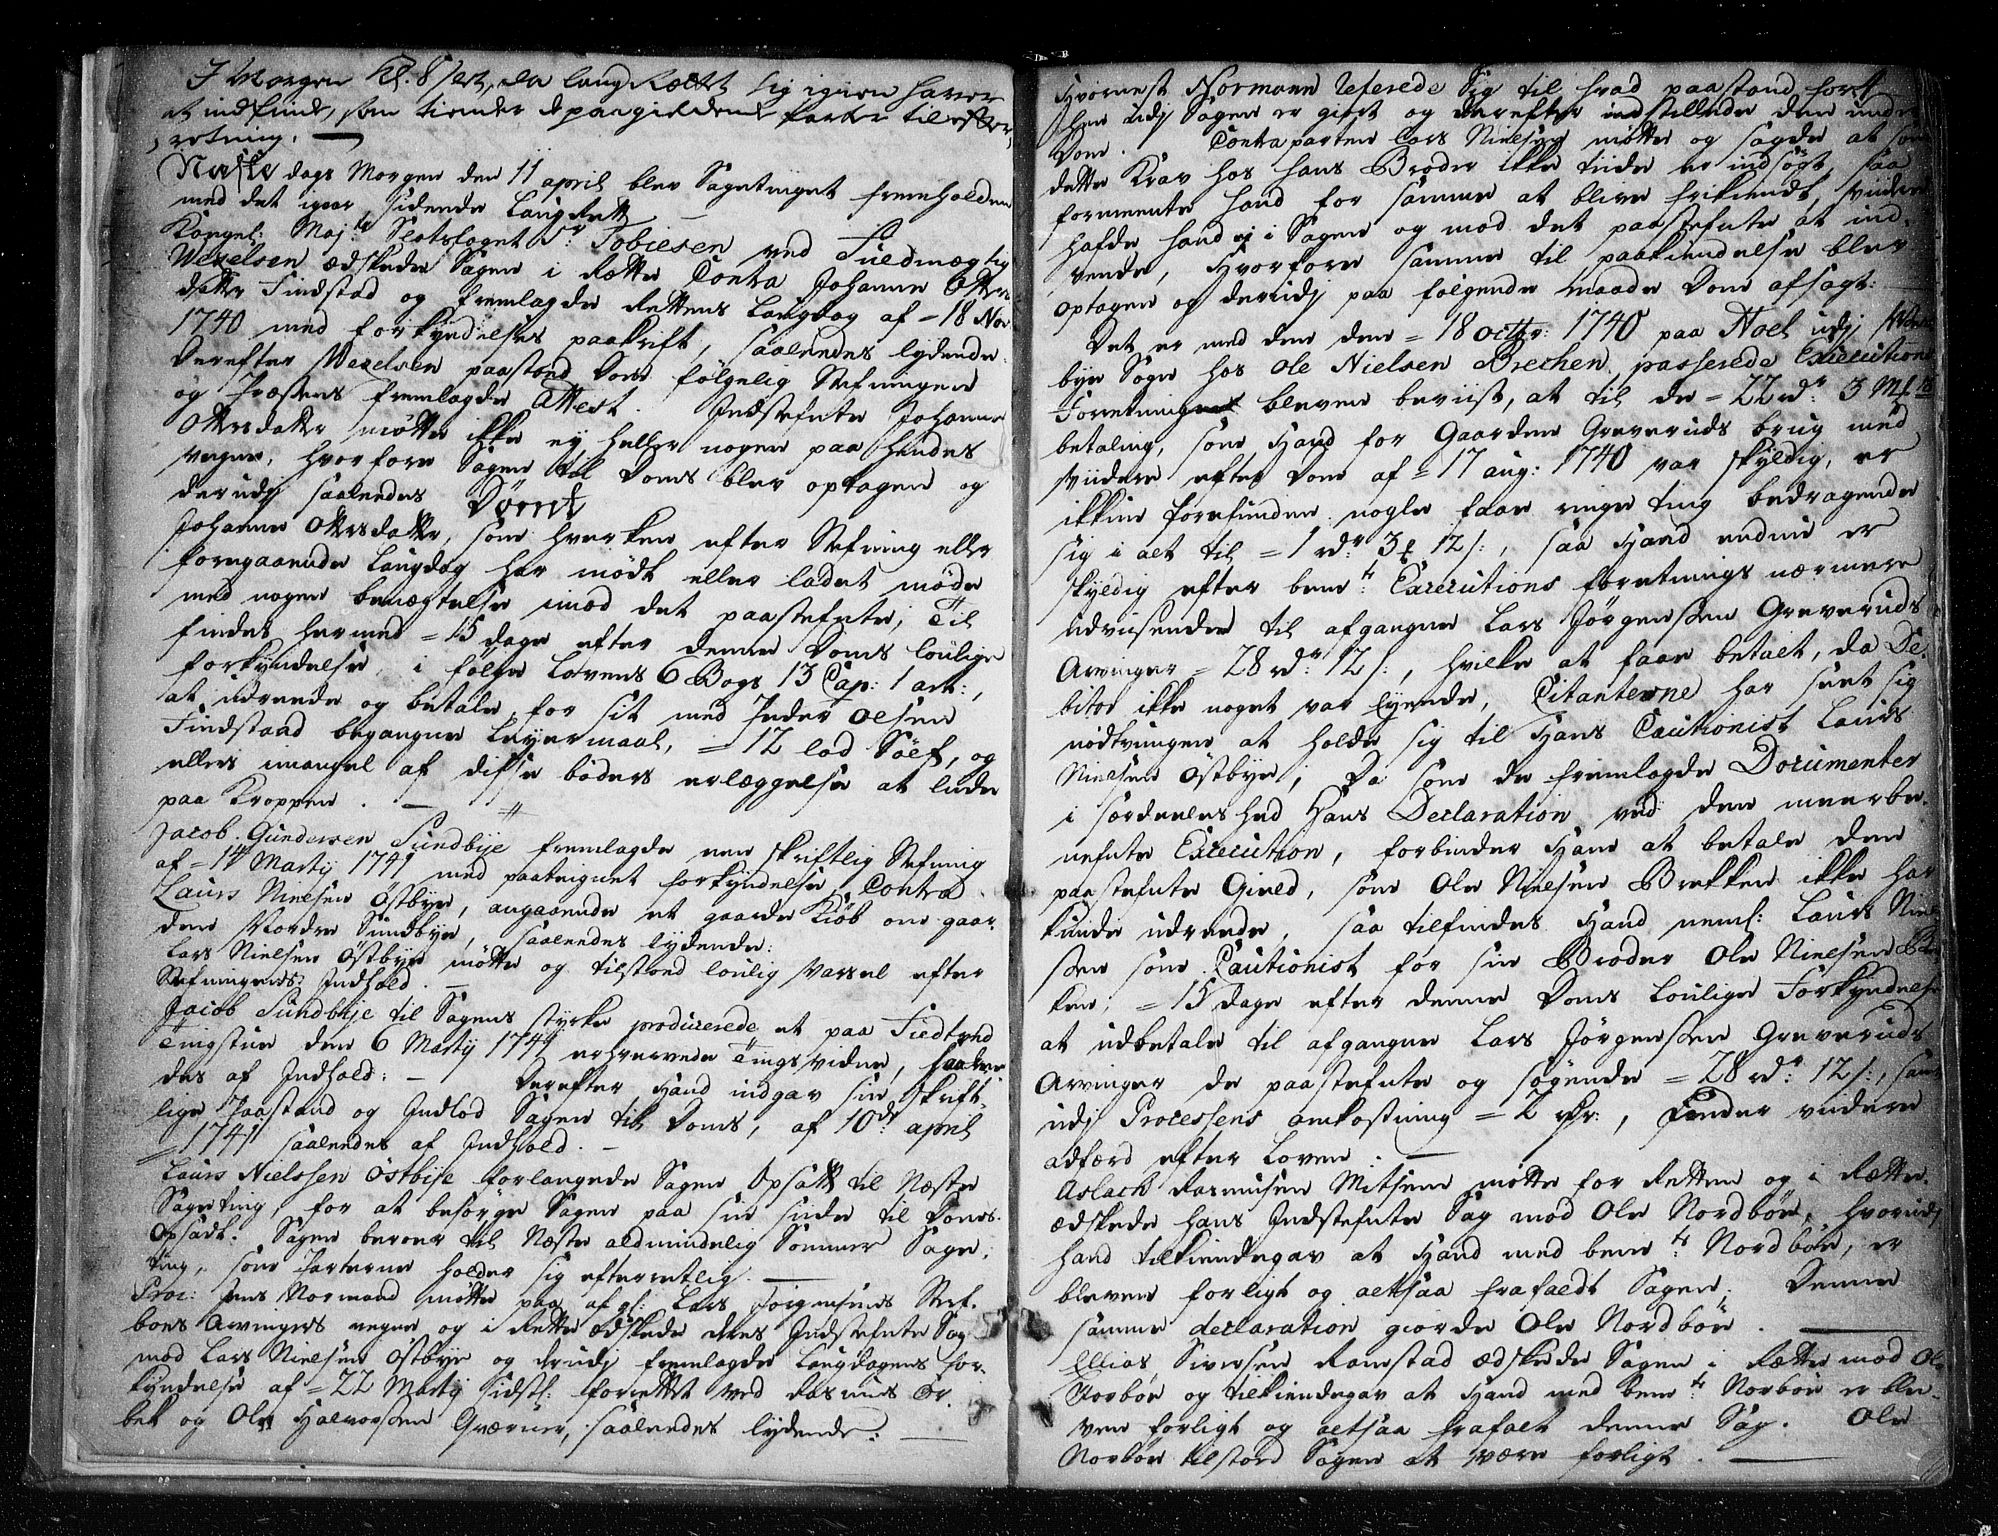 I Morgen Kl. 8 slet, da laug Rættet sig igien haver
at indfinde, som tiener de paagieldende Parter til efter
retning. —
Næste dags Morgen den 11 april blev Sageteinget fremholden
med det igaar sidende Laugrett —
Kongel: Maj:ts Slotsfoget Sr. Tobiesen ved Fuldmægtig
Wexelsen ædskede Sagen i Rette Contra Johanne Otters
datter Findstad og fremlagde Rettens Laugdag af = 18 Nov
1740 med forkyndelses paaskrift, saaleedes lydende.
Derefter Wexelsen paastod Dom følgelig Stefningen
og Præstens fremlagde Attest. Indstefnte Johanne
Ottersdatter møtte ikke ey heller nogen paa hendes
vegne, hvorfore Sagen til Doms blev optagen og
derudj saaleedes Dømt
Johanne Ottersdatter, som hverken efter Stefning eller
foregaaende Laugdag har mødt eller ladet møde
med nogen benægtelse imod det paastefnte, Til
findes hermed = 15 dage efter denne Doms loulige
forkyndelse, i følge Lovens 6 Bogs 13 Cap: 1 art:,
at udreede og betale for sit med Peder Olsen
Findstad begangne Leyermaal, = 12 lod Sølf, og
ellers i mangel af disse bøders erlæggelse at lide
paa Kroppen. —
Jacob Gundersen Sundbye fremlagde een skriftlig Stefning
af = 14 Martj 1741 med paateignet forkyndelse Contra
Laurs Nielsen Østbye, angaaende et gaarde Kiøb om gaar-
den Nordre Sundbye, saaleedes lydende:
Lars Nielsen Østbye møtte og tilstod loulig Varsel efter
Stefningens Indhold. —
Jacob Sundbye til Sagens styrke producerede et paa
Tingstue den 6 Martj 1741 erhvervede Tings vidne, saalee
des af Indhold: — Derefter Hand indgav sin skrift-
lige Paastand og Indlod Sagen til Doms, af 10de april
= 1741 saaleedes af Indhold. —
Laurs Nielssen Østbye forlangede Sagen Opsatt til Næste
Sageting, for at besørge Sagen paa sin side til Doms.
Opsadt. Sagen beroer til Næste aldmindelig Sommer Sage-
ting, som Parterne holder sig efterretlig. —
Proc: Jens Normand møtte paa afgl: Lars Jørgensens Sterf-
boes Arvingers vegne og i Rette ædskede dens Indstefnte Sag
mod Lars Nielsen Østbye og derudj fremlagde Laugdagens for-
kyndelse af = 22 Martj sidstl: forrettet ved Rasmus Or-
bek og Ole Halvorssen Gværner, saaleedes lydende: —
Hvornest Normann refererede Sig til hvad paastand for
hen udj Sagen er giort og derefter indstillede den under
Dom. Contraparten Lars Nielsen møtte og sagde at som
dette Krav hos hans Broder ikke tiide er indsøgt, saa
formeente hand for samme at blive frikiendt, viidere
hafde hand ej i Sagen og mod det paastefnte at ind-
vende, Hvorfore samme til paakiendelse blev
optagen og derudj paa følgende maade Dom afsagt:
Det er med den den = 18 octbr: 1740 paa Noel udj
bye Sogn hos Ole Nielsen Brechen passerede Executions
Forretning bleven beviist, at til de = 22 rdr: 3 Mk
betaling, som Hand for Gaarden Greveruds brug med
viidere efter Dom af = 17 aug: 1740 var skyldig, er
ikkun forefunden nogle faae ringe ting bedragende
sig i alt til = 1 rdr 3 12 s:, saa Hand endnu er
skyldig efter bemte: Executions forretnings nærmere
udviisende til afgangne Lars Jørgenssen Greveruds
Arvinger = 28 rdr: 12 s:, hvilke at faae betalt, da De-
bitor ikke noget var Eyende, Citanterne har seet sig
nødtvungen at holde sig til Hans Cautionist Laurs
Nielsen Østbye; Da som de fremlagde Documenter
i særdeeleshed Hans Declaration ved den meerbe-
nefnte Execution, forbinder Ham at betale den
paastefnte Gield, som Ole Nielsen Brekken ikke har
kunde udreede, saa tilfindes Hand neml: Laurs Niel
ssen som Cautionist for sin Broder Ole Nielsen Bre
ken, = 15 dage efter denne Doms Loulige Forkyndelse
at udbetale til afgangne Lars Jørgenssen Greveruds
Arvinger de paastefnte og søgende = 28 rdr: 12 s:, samt
udj Processens omkostning = 2 rdr:, under viidere
adfærd efter Loven. —
Aslach Rasmusen Mitsem møtte for Retten og i Rette
ædskede hans Indstefnte Sag mod Ole Nordbøe, hvorudj
hand tilkiendegav at Hand med bemte: Nordbøe, er
bleven forligt og altsaa frafaldt Sagen. Denne
samme declaration giorde Ole Nordbøe. —
Ellias Siversen Ramstad ædskede Sagen i Rette mod Ole
Norbøe og tilkiendegav at Hand med bemte: Norbøe er ble-
ven forligt og altsaa frafalt denne Sag. Ole
Norbøe tilstod Sagen at være forligt. —